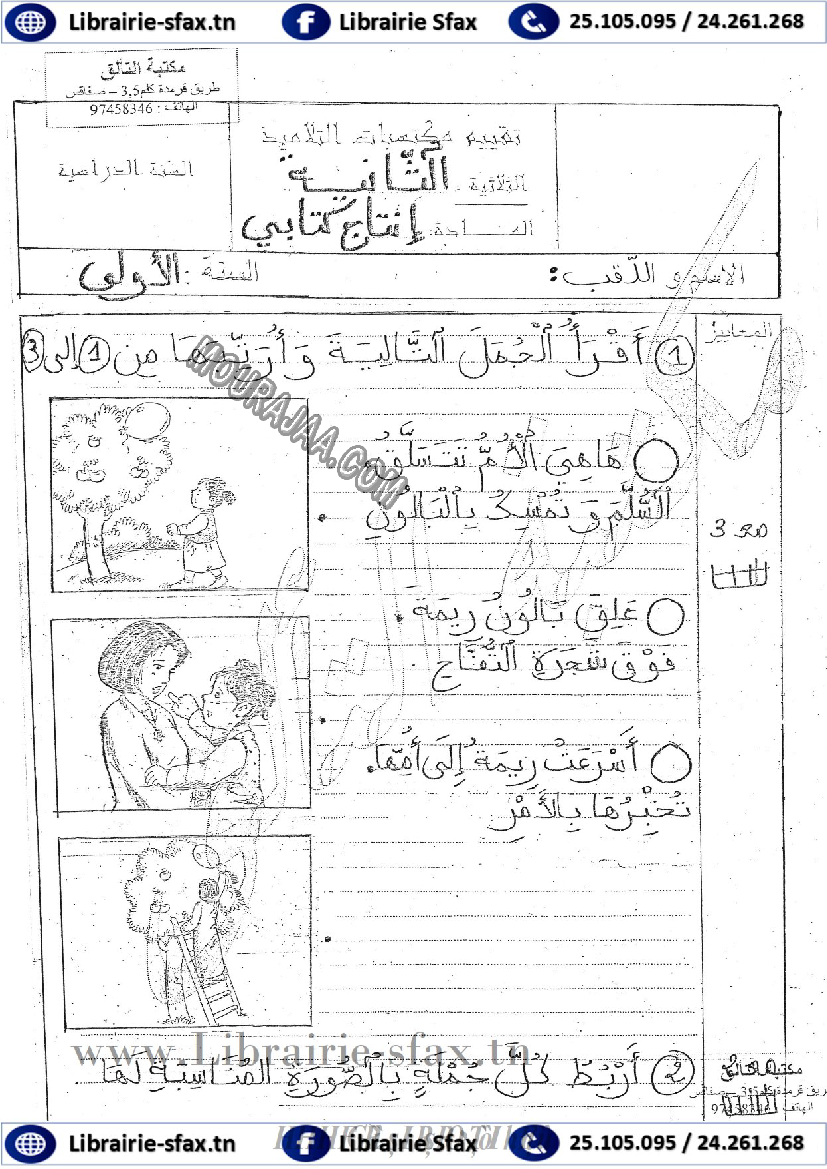 Librairie-sfax.tn Librairie Sfax 25.105.095 / 24.261.268
مكتبة التألق
طريق قرمدة كلم 3,5 - صفاقس
الهاتف : 97458346
تقييم مكتسبات التلاميذ
الثلاثية : الثَّانِيَة
المــــادة: إنتاج كتابي
السنة الدراسية
الاسم و اللّقب:
السنة : الأولى
المعايير
① أَقْرَأُ ٱلْجُمَلَ ٱلتَّالِيَةَ وَ أُرَتِّبُهَا مِن ① إلى ③
MOURAJAA.COM
هَاهِيَ ٱلْأُمُّ تَتَسَلَّقُ
ٱلسُّلَّمَ وَ تُمْسِكُ بِٱلْبَالُونِ
مع 3
عَلِقَ بَالُونُ رِيمَةَ
فَوْقَ شَجَرَةِ ٱلتُّفَّاحِ.
أَسْرَعَتْ رِيمَةُ إِلَى أُمِّهَا
تُخْبِرُهَا بِالأَمْرِ
www.Librairie-sfax.tn
② أَرْبُطُ كُلَّ جُمْلَةٍ بِٱلصُّورَةِ المُنَاسِبَةِ لَهَا
Librairie-sfax.tn Librairie Sfax 25.105.095 / 24.261.268